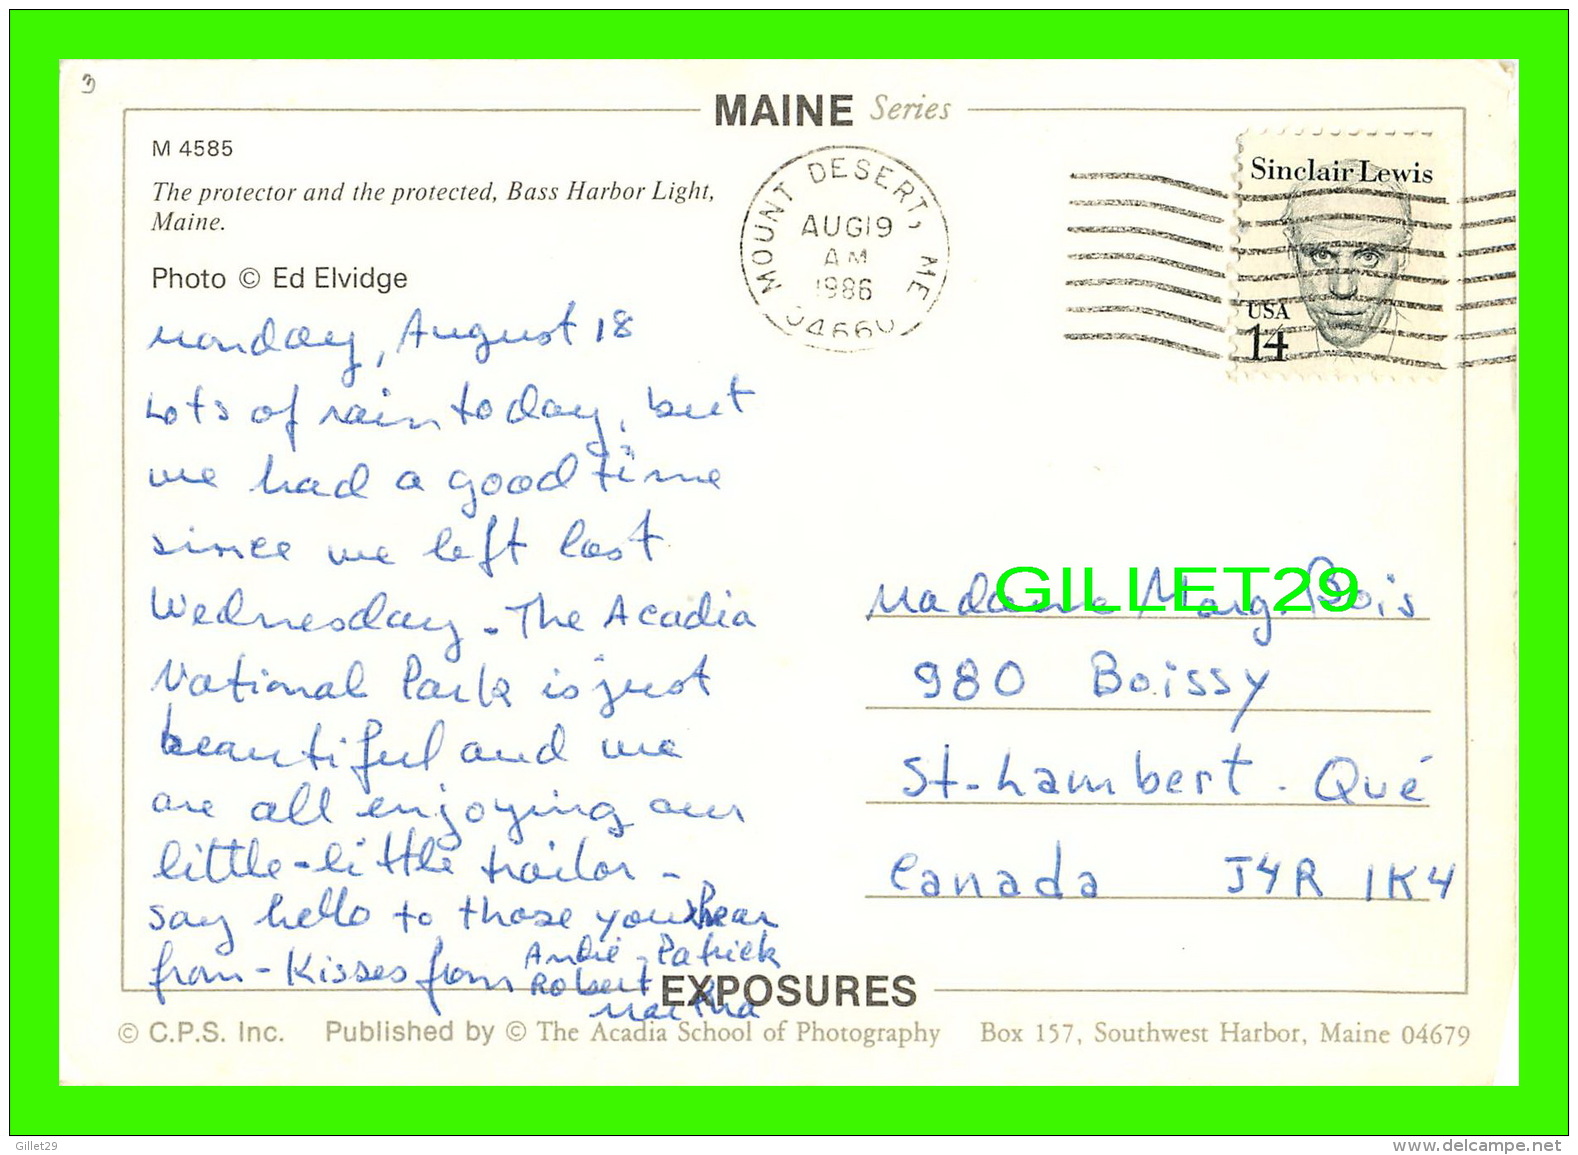 3
MAINE Series
M 4585
The protector and the protected, Bass Harbor Light,
Maine.
Photo © Ed Elvidge
MOUNT DESERT, ME
AUG 19
AM
1986
04660
Sinclair Lewis
USA
14
Monday, August 18
Lots of rain today, but
we had a good time
since we left last
Wednesday - The Acadia
National Park is just
beautiful and we
are all enjoying our
little-little trailor -
say hello to those you hear
from - Kisses from André - Patrick
Robert
Martha
GILLET29
Madame Marg. Bois
980 Boissy
St-Lambert - Qué
Canada J4R 1K4
EXPOSURES
© C.P.S. Inc. Published by © The Acadia School of Photography Box 157, Southwest Harbor, Maine 04679
Gillet29
www.delcampe.net